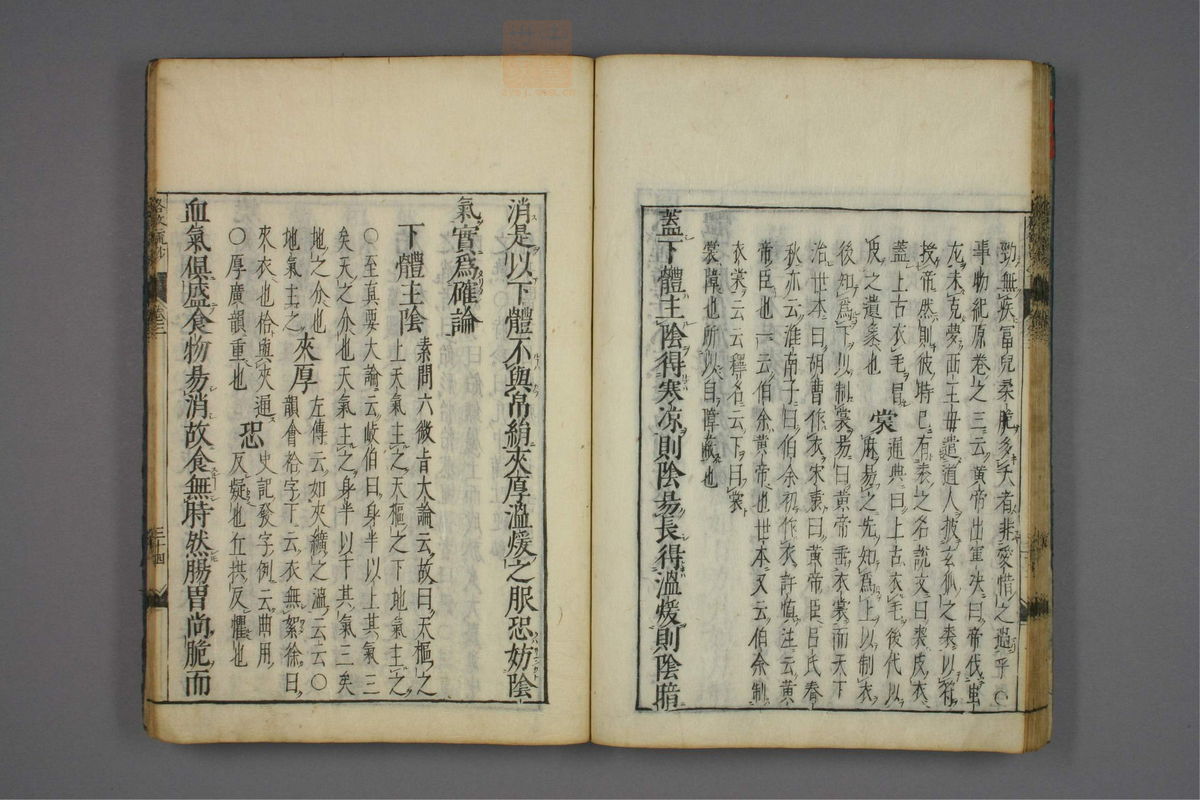 勁無疾冨兒柔脆多夭者非愛惜之過乎○
事物紀原卷之三云黄帝出軍决曰帝伐蚩
尤未克夢西王母遣道人披玄狐之裘以符
授帝然則彼時已有裘之名説文曰裘皮衣
蓋上古衣毛冒
皮之遺象也
裳
通典曰上古衣毛後代以
麻易之先知爲上以制衣
後知爲下以制裳易曰黄帝垂衣裳而天下
治世本曰胡曹作衣宋衷曰黄帝臣吕氏春
秋亦云淮南子曰伯余初作衣許慎注云黄
帝臣也一云伯余黄帝也世本又云伯余制
衣裳云云釋名云下曰裳
裳障也所以自障蔽也
蓋下體主陰得寒凉則陰易長得溫煖則陰暗
消是以下體不與帛絹夾厚溫煖之服恐妨陰
氣實爲確論
下體主陰
素問六微旨大論云故曰天樞之
上天氣主之天樞之下地氣主之
○至真要大論云岐伯曰身半以上其氣三
矣天之分也天氣主之身半以下其氣三矣
地之分也
地氣主之
夾厚
左傳云如夾纊之溫云云○
韻會袷字下云衣無絮徐曰
來衣也袷與夾通
○厚廣韻重也
恐
史記發字例云曲用
反疑也丘拱反懼也
血氣俱盛食物易消故食無時然腸胃尚脆而
三十四